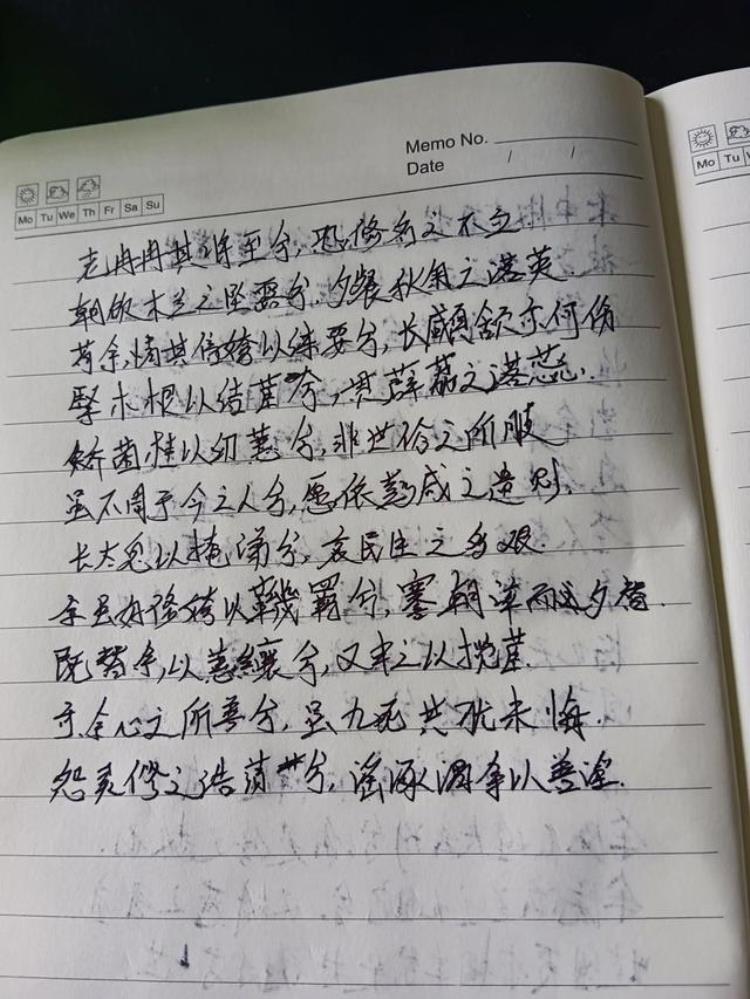 Memo No.
Date / /
Mo Tu We Th Fr Sa Su
Mo Tu
老冉冉其将至兮,恐修名之不立
朝饮木兰之坠露兮,夕餐秋菊之落英
苟余情其信姱以练要兮,长顑颔亦何伤
擥木根以结茝兮,贯薜荔之落蕊.
矫菌桂以纫蕙兮,非世俗之所服
虽不周于今之人兮,愿依彭咸之遗则.
长太息以掩涕兮,哀民生之多艰.
余虽好修姱以鞿羁兮,謇朝谇而夕替.
既替余以蕙纕兮,又申之以揽茝.
亦余心之所善兮,虽九死其犹未悔.
怨灵修之浩荡兮,谣诼谓余以善淫.